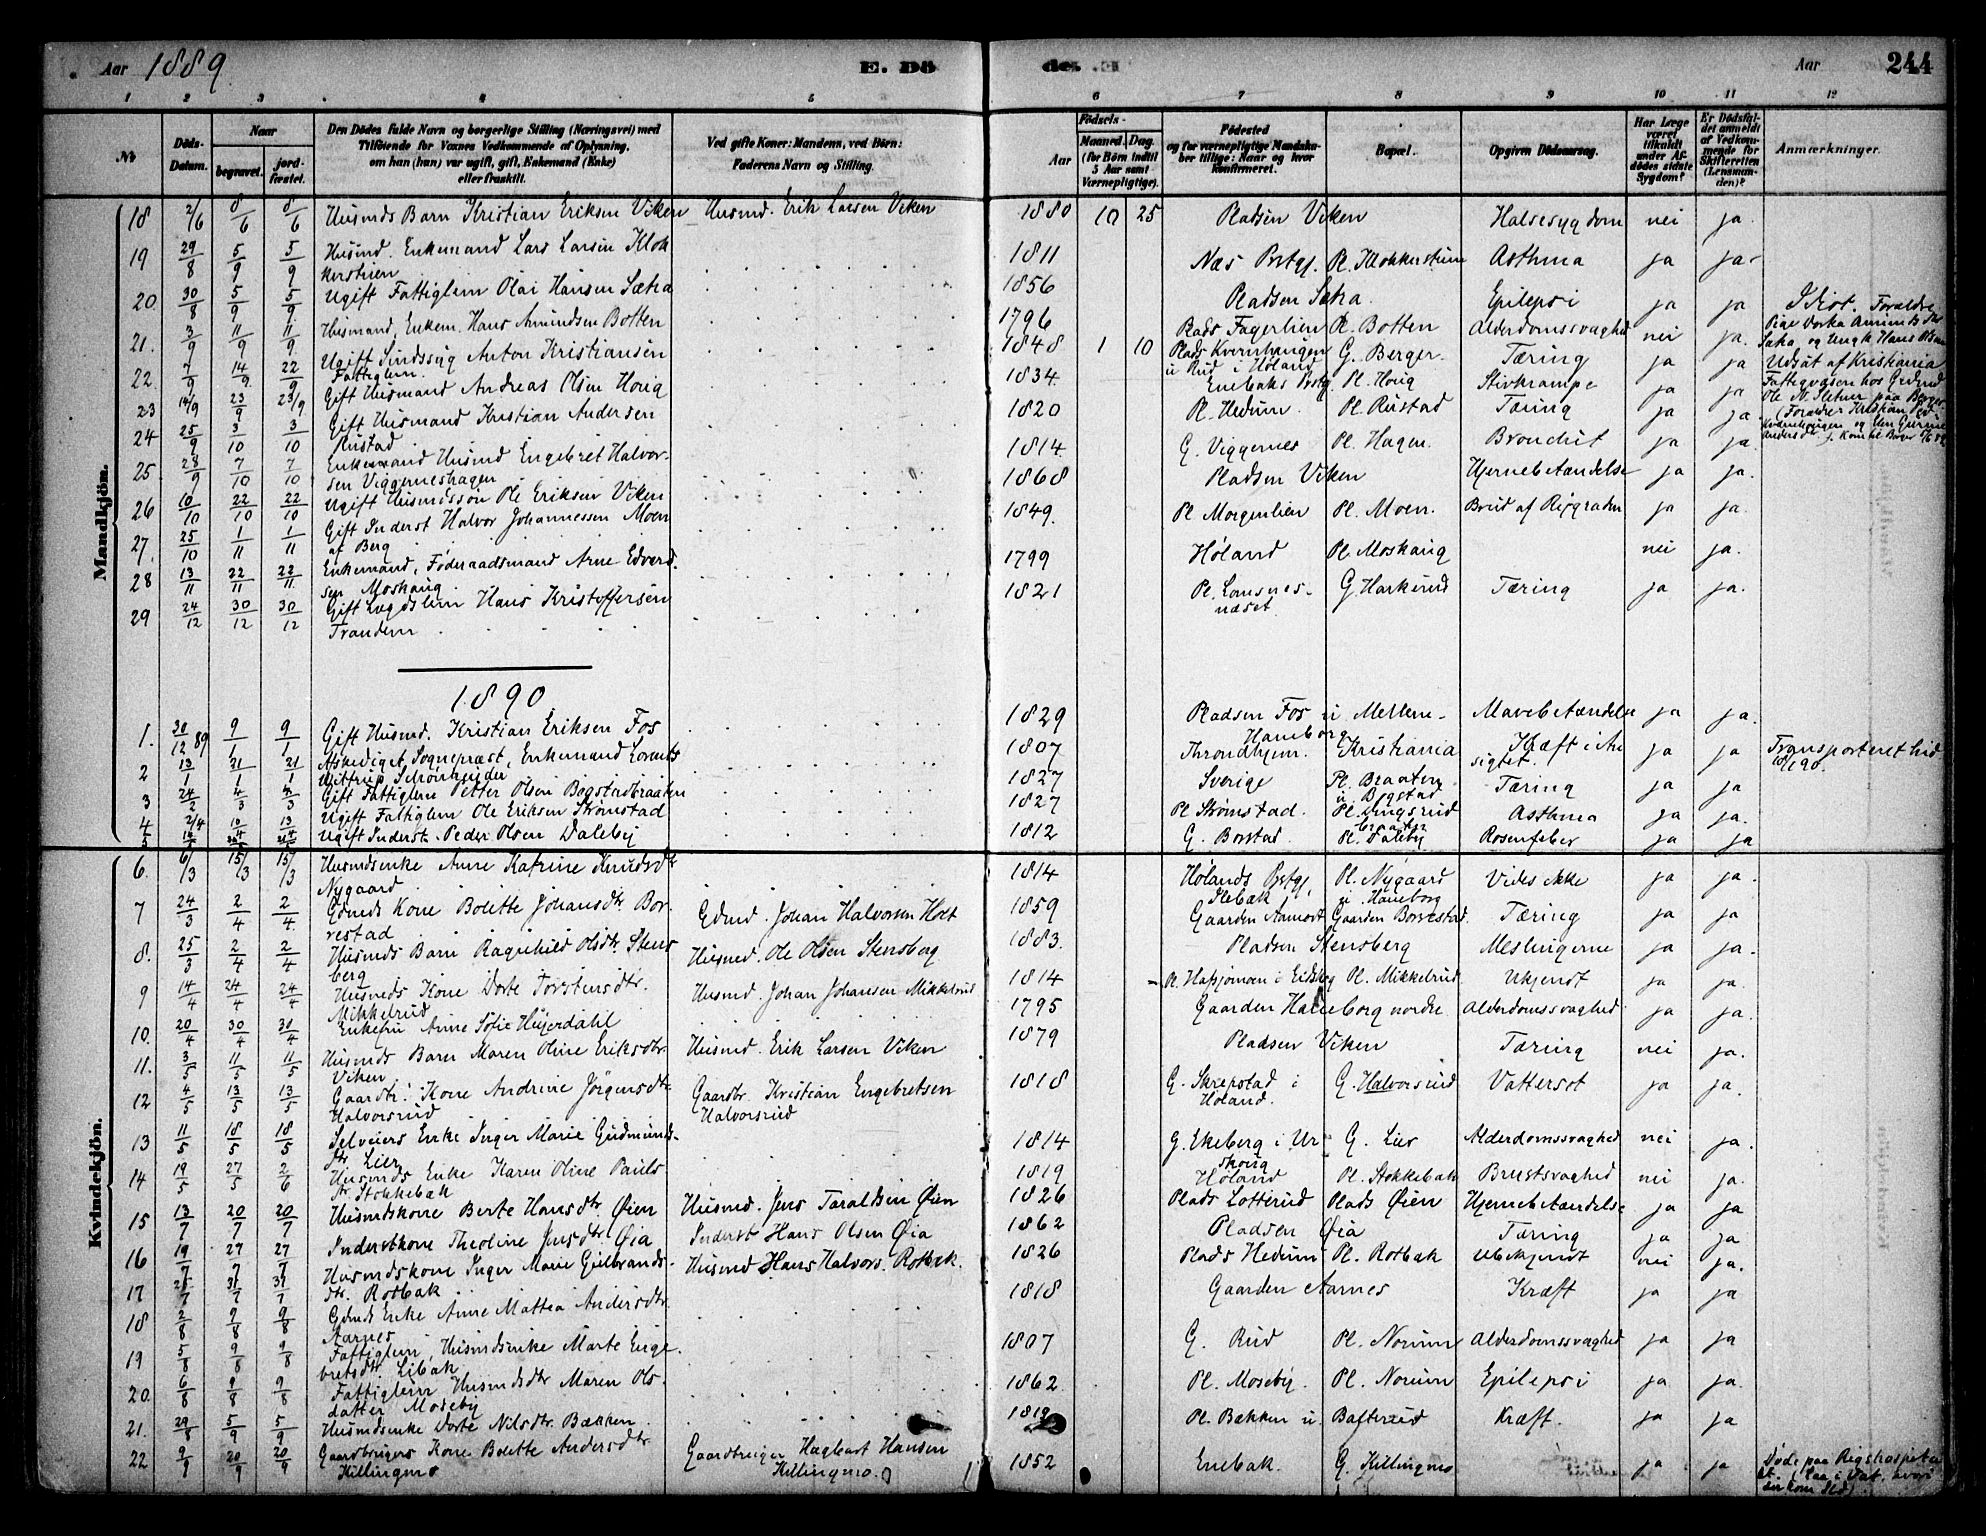 Aar 1889. E. Dö de. Aar 244
1 2 3 4 5 6 7 8 9 10 11 12
No Döds-Datum. Naar begravet. jordfæstet. Den Dödes fulde Navn og borgerlige Stilling (Næringsvei) med Tilföiende for Voxnes Vedkommende af Oplysning, om han (hun) var ugift, gift, Enkemand (Enke) eller fraskilt. Ved gifte Koner: Mandens, ved Börn: Faderens Navn og Stilling. Födsels- Aar Maaned. Dag. (for Börn indtil 5 Aar samt Værnepligtige). Födested og for værnepligtige Mandskaber tillige: Naar og hvor konfirmeret. Bopæl. Opgiven Dödsaarsag. Har Læge været tilkaldt under Afdödes sidste Sygdom? Er Dödsfaldet anmeldt af Vedkommende for Skifteretten (Lensmanden)? Anmærkninger.
Mandkjön.
18 2/6 8/6 8/6 Husmds Barn Kristian Eriksen Viken Husmd. Erik Larsen Viken 1880 10 25 Pladsen Viken Halsesygdom nei ja.
19 29/8 5/9 5/9 Husmd. Enkemand Lars Larsen Klokkerstuen 1811 Næs Prstgj. Pl. Klokkerstuen Asthma ja ja
20. 30/8 5/9 5/9 Ugift Fattiglem Olai Hansen Sætra 1856 Pladsen Sætra. Epilepsi ja ja Idiot. Forældre
21. 3/9 11/9 11/9 Husmand, Enkem. Hans Amundsen Botten 1796 Plads Fagerlien Pl. Botten Alderdomssvaghed nei ja.
22. 7/9 14/9 22/9 Ugift Sindssyg Anton Kristiansen Fattiglem. 1848 1 10 Plads Kvernhaugen u Rud i Höland G. Berger. Tæring ja ja Udsat af Kristiania Fattigvæsen hos Grdmd
23 14/9 23/9 23/9 Gift Husmand Andreas Olsen Horig 1834 Enebaks Prstg. Pl. Horig Stivkrampe ja ja
24 25/9 3/10 3/10 Gift Husmand Kristian Andersen Rustad 1820 Pl. Hedum. Pl. Rustad Tæring ja ja
25 28/9 7/10 7/10 Enkemand Husmd Engebret Halvorsen Viggerneshagen 1814 G. Viggernes Pl. Hagen. Bronchit ja ja.
26 10/10 22/10 22/10 Ugift Husmdssøn Ole Eriksen Viken 1868 Pladsen Viken Hjernebetændelse ja ja.
27. 25/10 1/11 1/11 Gift Inderst Halvor Johannessen Moen af Berg 1849. Pl. Morgenlien Pl. Moen. Brud af Rygraden ja ja.
28 13/11 22/11 22/11 Enkemand, Føderaadsmand Arne Edvardsen Moskaug 1799 Höland Pl. Moskaug nei ja.
29 24/12 30/12 30/12 Gift Lægdslem Hans Kristoffersen Trandem 1821 Pl. Lomsnesnæset. G. Harkerud Tæring ja ja.
1890
1. 30/12 89 9/1 9/1 Gift Husmd. Kristian Eriksen Fos 1829 Pladsen Fos u Mellem-Haneborg Mavebetændelse ja ja.
2 13/1 21/1 21/1 Afskediget Sogneprest, Enkemand Lorents Wittrup Schönheyder 1807 Throndhjem. Kristiania Kræft i Ansigtet. ja ja Transporteret hid
3 24/2 4/3 4/3 Gift Fattiglem Petter Olsen Bogstadbraaten 1827 Sverige Pl. Braaten u Bogstad Tæring ja ja
4 2/4 10/4 13/4 Ugift Fattiglem Ole Eriksen Strømstad 1827 Pl. Strømstad. Asthma ja ja.
5 Ugift Inderst. Peder Olsen Daleby 1812 G. Borstad Pl. Daleby Rosenfeber ja ja
Kvindekjön.
6. 6/3 15/3 15/3 Husmdsenke Anne Katrine Knudsdtr Nygaard 1814 Hölands Prstgj. Pl. Nygaard u. Haneborg Vides ikke ja ja.
7 24/3 2/4 2/4 Gdmds Kone Bolette Johansdtr. Borrestad Gdmd. Johan Halvorsen Holt 1859 Gaarden Aamodt Gaarden Borrestad. Tæring ja ja
8. 25/3 2/4 2/4 Husmds Barn Ragnhild Olsdtr. Stensberg Husmd. Ole Olsen Stensberg 1883. Pladsen Stensberg Meslingerne ja ja.
9 14/4 24/4 24/4 Husmds Kone Dorte Torstensdtr. Mikkelrud Husmd. Johan Johansen Mikkelrud 1814 Pl. Mikkelrud Ukjendt ja ja.
10. 20/4 30/4 30/4 Enkefru Anne Sofie Heyerdahl 1795 Gaarden Haneborg nordre Alderdomssvaghed ja ja.
11. 3/5 11/5 11/5 Husmds Barn Maren Oline Eriksdtr. Viken Husmd. Erik Larsen Viken 1879 Pladsen Viken Tæring nei ja.
12 4/5 13/5 13/5 Gaardbr. Kone Andrine Jörgensdtr. Halvorsrud Gaardbr. Kristian Engebretsen Halvorsrud 1818 G. Skrepstad i Höland. G. Halvorsrud Vattersot ja ja.
13 11/5 18/5 18/5 Selveiers Enke Inger Marie Gudmundsdtr Lier 1814 G. Ekeberg i Urskoug G. Lier Alderdomssvaghed nei ja.
14 19/5 27/5 2/6 Husmds Enke Karen Oline Paulsdtr. Stokkebæk 1819 Höland Pl. Stokkebæk Brystsvaghed nei ja.
15 13/7 20/7 20/7 Husmdskone Berte Hansdtr. Øien Husmd. Jens Taraldsen Øien 1826 Plads Lotterud Plads Øien Hjernebetændelse ja ja
16 19/7 27/7 27/7 Inderstkone Theoline Jensdtr Øia Inderst Hans Olsen Øia 1862 Pladsen Øia Tæring ja ja
17 25/7 31/7 31/7 Husmdskone Inger Marie Gulbrandsdtr. Rotbæk Husmd Hans Halvors. Rotbæk. 1826 Plads Hedum Pl. Rotbæk Ubekjendt nei ja.
18 2/8 9/8 9/8 Gdmds Enke Anne Mattea Andersdtr. Aarnes 1818 Gaarden Aarnes Kræft ja ja
19 5/8 9/8 9/8 Fattiglem, Husmdsenke Marte Engebretsdtr. Libæk 1807 G. Rud Pl. Norum Alderdomssvaghed ja ja
20. 6/8 9/8 9/8 Fattiglem Husmdsdtr Maren Olsdatter Moseby 1862 Pl. Moseby. Pl. Norum Epilepsi ja ja.
21. 29/8 5/9 5/9 Husmdsenke Dorte Nilsdtr. Bækken 1819 Pl. Bækken u. Bafterud Kræft. ja ja
22 9/9 20/9 20/9 Gaardbrugers Kone Bolette Andersdtr Killingmo Gaardbruger Hagbart Hansen Killingmo. 1852 Enebak. G. Killingmo ja ja Døde paa Rigshospitalet.